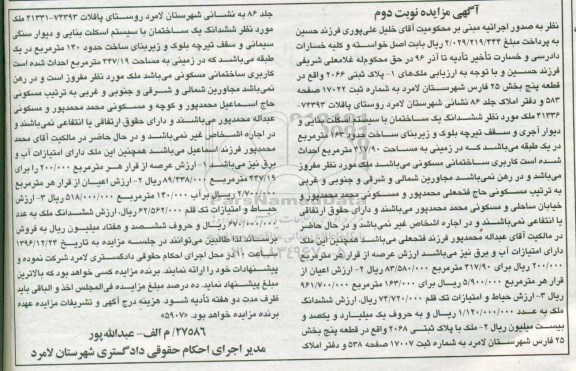 آگهی مزایده نوبت دوم
نظر به صدور اجرائیه مبنی بر محکومیت آقای خلیل علی‌پوری فرزند حسین
به پرداخت مبلغ ۲/۰۲۹/۲۱۹/۳۴۴ ریال بابت اصل خواسته و کلیه خسارات
دادرسی و خسارت تأخیر تأدیه تا آذر ۹۶ در حق محکوم‌له غلامعلی شریفی
فرزند حسین و با توجه به ارزیابی ملک‌های ۱- پلاک ثبتی ۲۰۶۶ واقع در
قطعه پنج بخش ۲۵ فارس شهرستان لامرد به شماره ثبت ۱۷۰۲۲ صفحه
۵۸۳ و دفتر املاک جلد ۸۶ نشانی شهرستان لامرد روستای پاقلات ۷۴۳۹۳-
۲۱۳۳۶ ملک مورد نظر ششدانگ یک ساختمان با سیستم اسکلت بنایی و
دیوار آجری و سقف تیرچه بلوک و زیربنای ساخت حدود ۱۶۳ مترمربع
در یک طبقه می‌باشد که در زمینی به مساحت ۳۱۷/۹۰ مترمربع احداث
شده است کاربری ساختمانی مسکونی می‌باشد ملک مورد نظر مفروز
می‌باشد و در رهن نمی‌باشد مجاورین شمالی و شرقی و جنوبی و غربی
به ترتیب مسکونی حاجی فتحعلی محمدپور و مسکونی محمد محمدپور و
خیابان ساحلی و مسکونی محمد محمدپور می‌باشند و دارای حقوق ارتفاقی
یا انتفاعی نمی‌باشند و در اجاره اشخاص غیر نمی‌باشد و در حال حاضر
در مالکیت آقای عبداله محمدپور فرزند فتحعلی می‌باشد همچنین این ملک
دارای امتیازات آب و برق نیز می‌باشد ارزش عرصه از قرار هر مترمربع
۲۰۰/۰۰۰ ریال برای ۳۱۷/۹۰ مترمربع ۸۳/۵۸۰/۰۰۰ ریال ۲- ارزش اعیان از
قرار هر مترمربع ۵/۹۰۰/۰۰۰ ریال برای ۱۶۳/۰۰ مترمربع ۹۶۱/۷۰۰/۰۰۰
ریال ۳- ارزش حیاط و امتیازات تک قلم ۷۴/۷۲۰/۰۰۰ ریال، ارزش ششدانگ
ملک به عدد ۱/۱۲۰/۰۰۰/۰۰۰ ریال و به حروف یک میلیارد و یکصد و
بیست میلیون ریال ۲- ملک با پلاک ثبتی ۲۰۶۸ واقع در قطعه پنج بخش
۲۵ فارس شهرستان لامرد به شماره ثبت ۱۷۰۰۷ صفحه ۵۳۸ و دفتر املاک
جلد ۸۶ به نشانی شهرستان لامرد روستای پاقلات ۷۴۳۹۳-۲۱۳۳۱ ملک
مورد نظر ششدانگ یک ساختمان با سیستم اسکلت بنایی و دیوار سنگی
سیمانی و سقف تیرچه بلوک و زیربنای ساخت حدود ۱۴۰ مترمربع در یک
طبقه می‌باشد که در زمینی به مساحت ۴۴۷/۱۹ مترمربع احداث شده است
کاربری ساختمانی مسکونی می‌باشد ملک مورد نظر مفروز است و در رهن
نمی‌باشد مجاورین شمالی و شرقی و جنوبی و غربی به ترتیب مسکونی
حاج اسماعیل محمدپور و کوچه و مسکونی محمد محمدپور و مسکونی
عبداله محمدپور می‌باشند و دارای حقوق ارتفاقی یا انتفاعی نمی‌باشند و
در اجاره اشخاص غیر نمی‌باشد و در حال حاضر در مالکیت آقای محمد
محمدپور فرزند اسماعیل می‌باشد همچنین این ملک دارای امتیازات آب و
برق نیز می‌باشد ۱- ارزش عرصه از قرار هر مترمربع ۲۰۰/۰۰۰ ریال برای
۴۴۷/۱۹ مترمربع ۸۹/۴۳۸/۰۰۰ ریال ۲- ارزش اعیان از قرار هر مترمربع
۳/۷۰۰/۰۰۰ ریال برای ۱۴۰/۰۰۰ مترمربع ۵۱۸/۰۰۰/۰۰۰ ریال ۳- ارزش
حیاط و امتیازات تک قلم ۶۲/۵۶۲/۰۰۰ ریال، ارزش ششدانگ ملک به عدد
۶۷۰/۰۰۰/۰۰۰ ریال و حروف ششصد و هفتاد میلیون ریال به فروش
برساند لذا طالبین می‌توانند در جلسه مزایده به تاریخ ۱۳۹۶/۱۲/۲۳
در محل اجرای احکام حقوقی دادگستری لامرد شرکت نموده و
پیشنهادات خود را ارائه نمایند. برنده مزایده کسی خواهد بود که بالاترین
مبلغ پیشنهاد نماید. ده درصد مبلغ مزایده فی‌المجلس اخذ و الباقی باید
ظرف مدت دو هفته تأدیه شود. هزینه درج آگهی و تشریفات مزایده عهده
برنده مزایده خواهد بود. ۵۹۰۷
۲۷۵۸۶/ م الف- عبدالله‌پور
مدیر اجرای احکام حقوقی دادگستری شهرستان لامرد